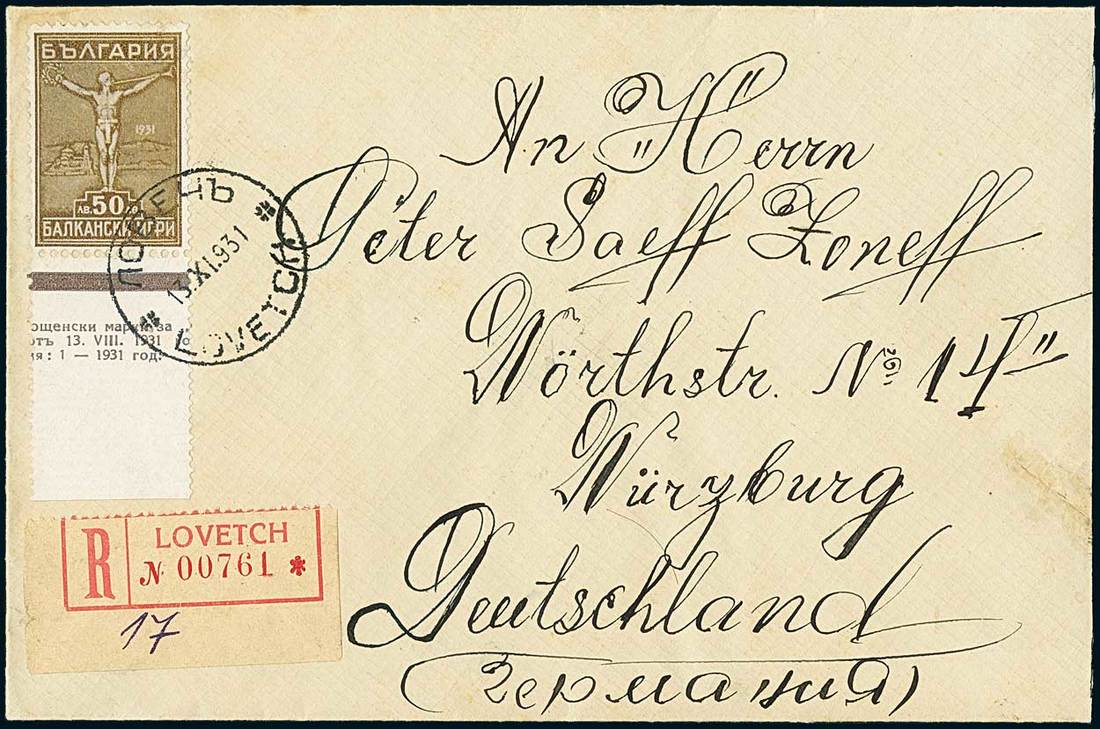 БЪЛГАРИЯ
1931
ЛВ. 50 ЛВ.
БАЛКАНСКИ ИГРИ
ЛОВЕЧЪ
13.XI.931
LOVETCH
ощенски марки за
отъ 13. VIII. 1931 го
ия: 1 — 1931 год.
An Herrn
Peter Saeff Zoneff
Wörthstr. № 14
Würzburg
Deutschland
(Германия)
R LOVETCH
№ 00761 *
17